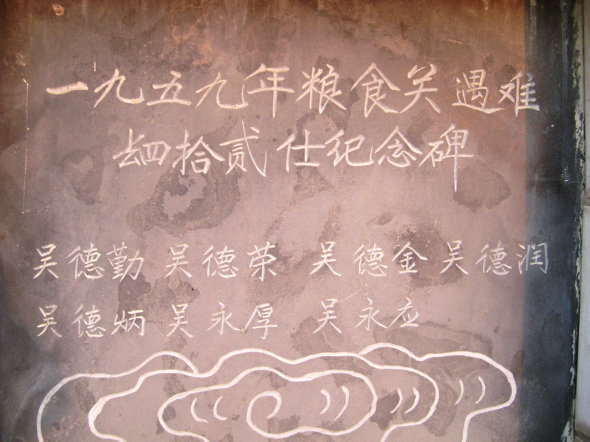 一九五九年粮食关遇难
四拾贰 仕纪念碑
吴德勤 吴德荣 吴德金 吴德润
吴德炳 吴永厚 吴永应